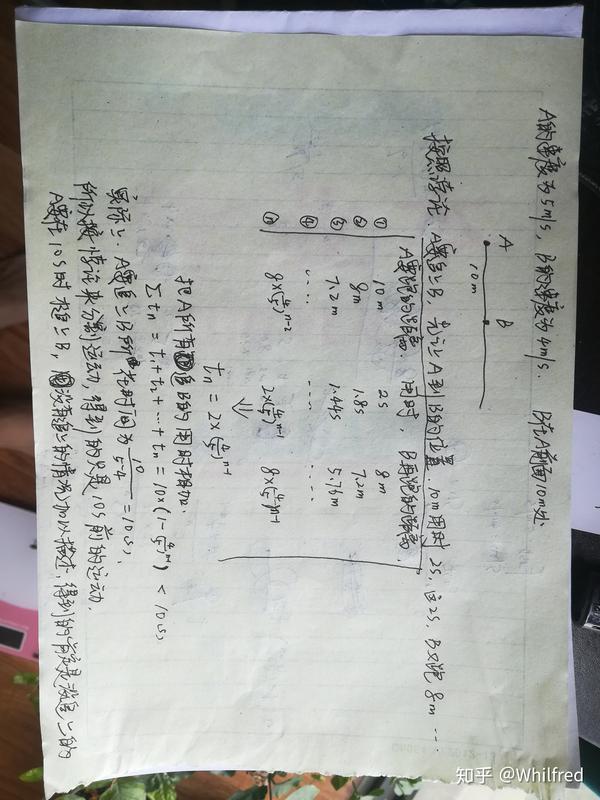 A的速度为5m/s, B的速度为4m/s. B在A前面10m处
A B
10m
按照悖论. A要追上B, 先让A到B的位置. 10m用时 2s, 这2s. B又跑 8m ....
A要跑的路程. 用时, B再跑的路程.
① 10m 2s 8m
② 8m 1.8s 7.2m
③ 7.2m 1.44s 5.76m
④ ..... .... ....
ⓝ 8×(4/5)^{n-2} 2×(4/5)^{n-1} 8×(4/5)^{n-1}
⇓
t_n = 2×(4/5)^{n-1}
把A所有追B的用时相加.
∑t_n = t_1+t_2+...+t_n = 10×(1-(4/5)^{n}) < 10(s)
实际上. A要追上B所花时间为 10/(5-4) = 10(s),
所以按悖论来分割运动, 得到的只是10s前的运动.
A要在10s时才追上B, 没有追上的情况加以描述, 得到的肯定是没追上的
知乎 @Whilfred